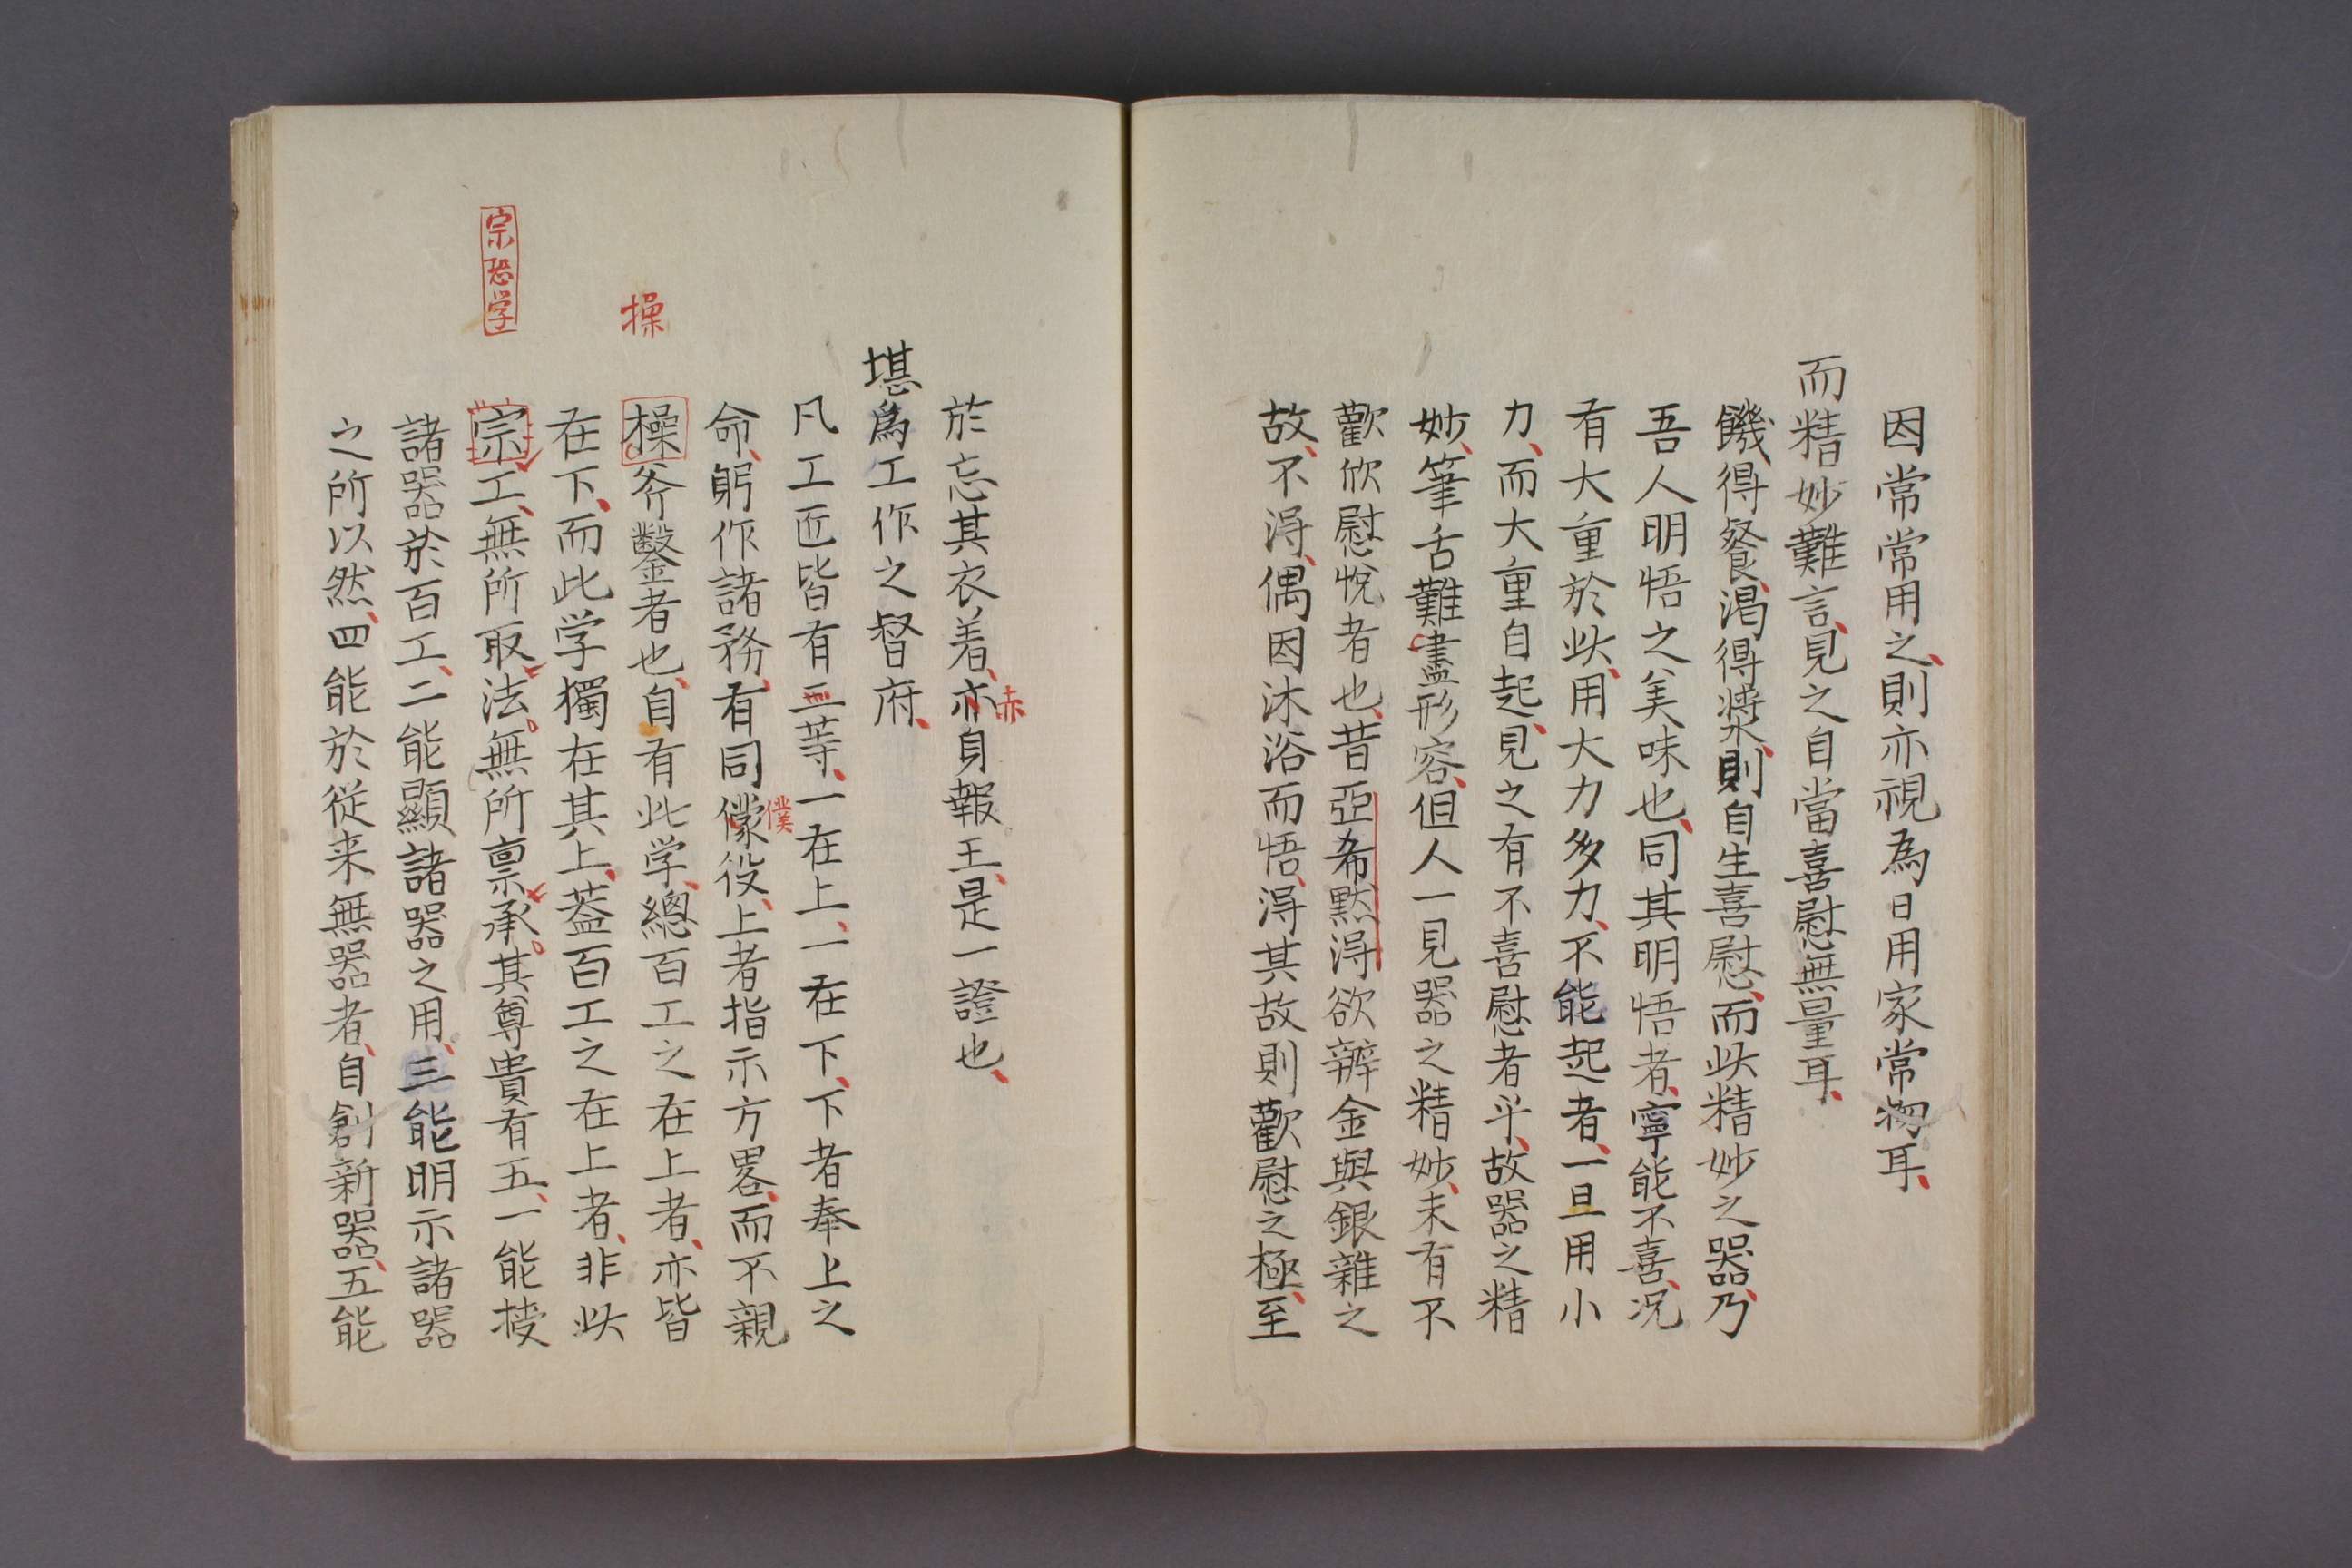 因常常用之、則亦視為日用家常物耳、
而精妙難言、見之自當喜慰無量耳、
饑、得餐、渇得漿、則自生喜慰、而此精妙之器、乃
吾人明悟之美味也、同其明悟者、寧能不喜、况
有大重於此、用大力多力、不能起者、一旦用小
力、而大重自起、見之有不喜慰者乎、故器之精
妙、筆舌難盡形容、但人一見器之精妙、未有不
歡欣慰悅者也、昔亞希黙得欲辨金與銀雜之
故、不得、偶因沐浴而悟、得其故則歡慰之極、至
於忘其衣着、亦身報王、是一證也、
赤
堪為工作之督府、
凡工匠皆有三等、一在上、一在下、下者奉上之
命、躬作諸務、有同儯役、上者指示方畧、而不親
僕
操斧鑿者也、自有此学、總百工之在上者、亦皆
操
在下、而此学獨在其上、葢百工之在上者、非此
宗工、無所取法。無所禀承。其尊貴有五、一能授
宗恐学
諸器於百工、二能顯諸器之用、三能明示諸器
之所以然、四能於従来無器者、自創新器、五能